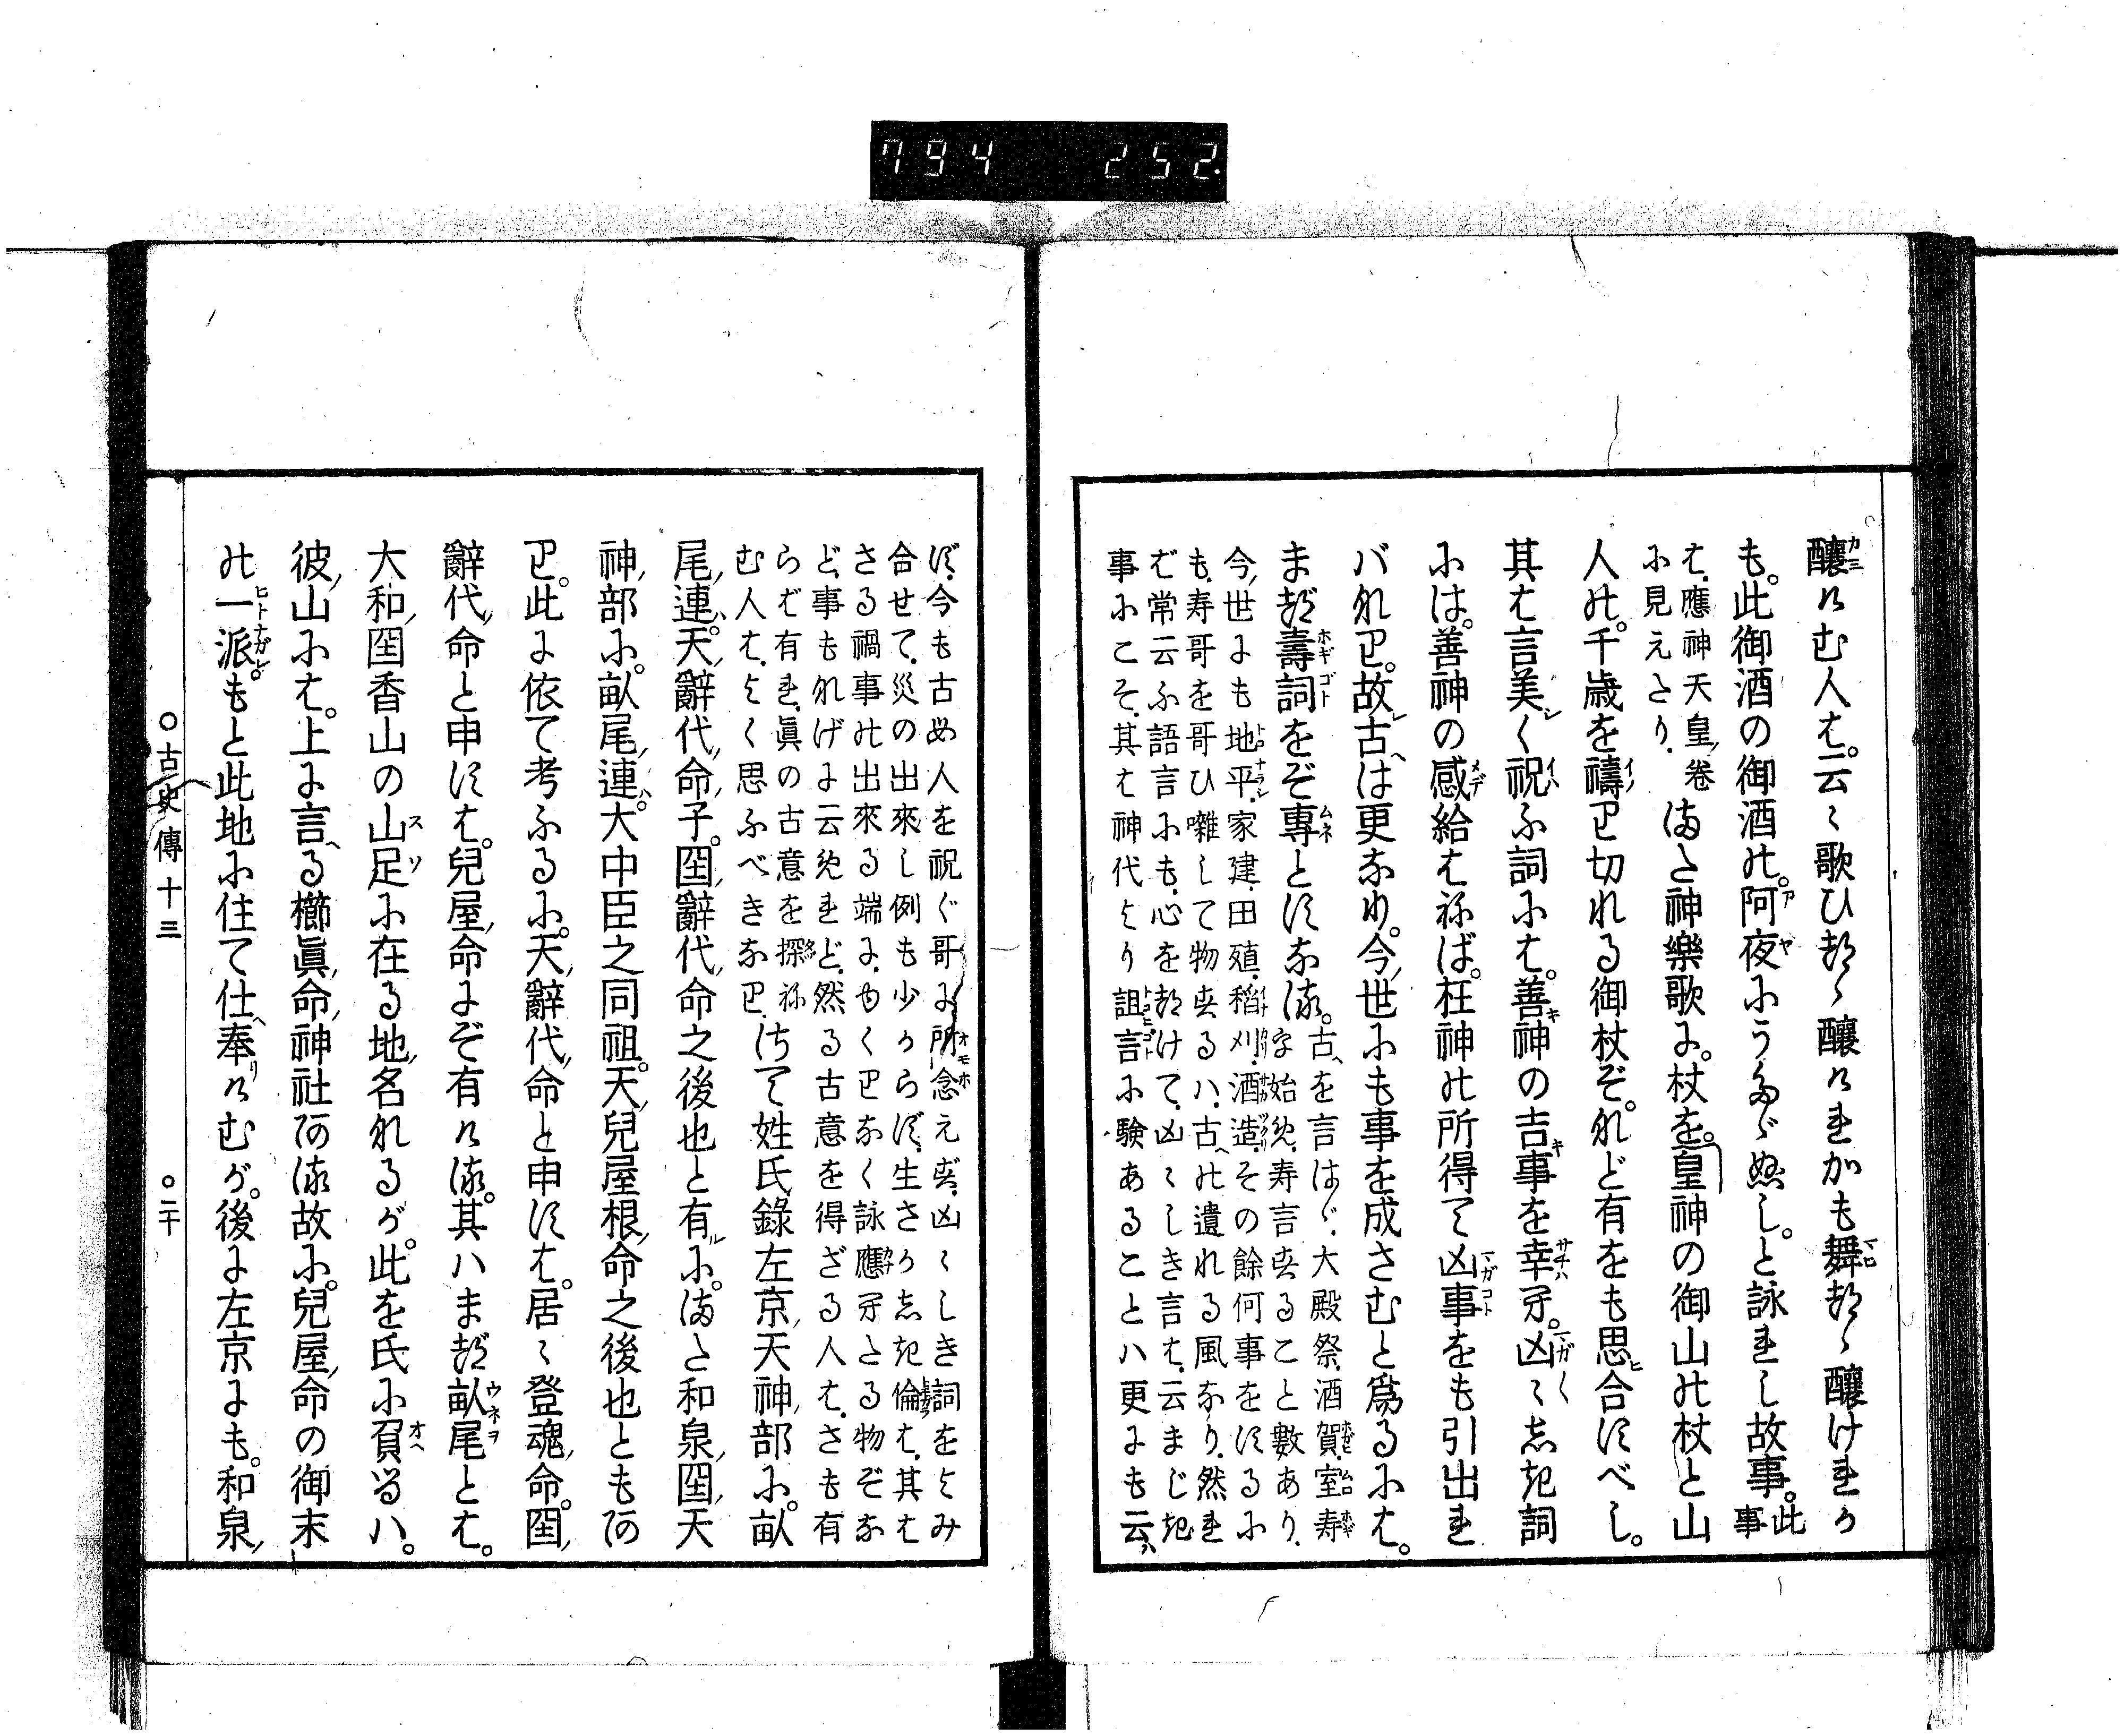 794 252
釀けむ人は。云々歌ひつゝ釀けれかも舞つゝ釀けれか
も。此御酒の御酒の。阿夜にうたゞぬし。と詠れし故事。此事
は、應神天皇卷
に見えたり、
また神樂歌に。杖を。皇神の御山の杖と山
人の。千歳を禱り切れる御杖ぞ。など有をも思合すべし。
其は言美く祝ふ詞には。善神の吉事を幸へ。凶々しき詞
には。善神の感給はねば。枉神の所得て凶事をも引出れ
バなり。故古は更なり。今世にも事を成さむと爲るには。
まづ壽詞をぞ專とすなる。
古を言はゞ、大殿祭、酒賀、室寿
を始め、寿言せること數あり、
今世にも地平、家建、田殖、稻刈、酒造、その餘何事をするに
も、寿哥を哥ひ囃して物せるハ、古の遺れる風なり、然れ
ば常云ふ語言にも、心をつけて、凶々しき言は、云まじき
事にこそ、其は神代より詛言に驗あることハ更にも云ハ
ず、今も古の人を祝ぐ哥に所念えず、凶々しき詞をよみ
合せて、災の出來し例も少からず、生さかしき倫は、其は
さる禍事の出來る端に、ゆくりなく詠應へたる物ぞな
ど、事もなげに云めれど、然る古意を得ざる人は、さも有
らば有れ、眞の古意を探ね
む人は、よく思ふべきなり、
さて姓氏錄左京天神部に。畝
尾連。天辭代命子。国辭代命之後也と有に。また和泉国天
神部に。畝尾連。大中臣之同祖。天兒屋根命之後也ともあ
り。此に依て考ふるに。天辭代命と申すは。居々登魂命。国
辭代命と申すは。兒屋命にぞ有ける。其ハまづ畝尾とは。
大和国香山の山足に在る地名なるが。此を氏に負るハ。
彼山には。上に言る櫛眞命神社ある故に。兒屋命の御末
の一派。もと此地に住て仕奉けむが。後に左京にも。和泉
○古史傳十三 ○二十